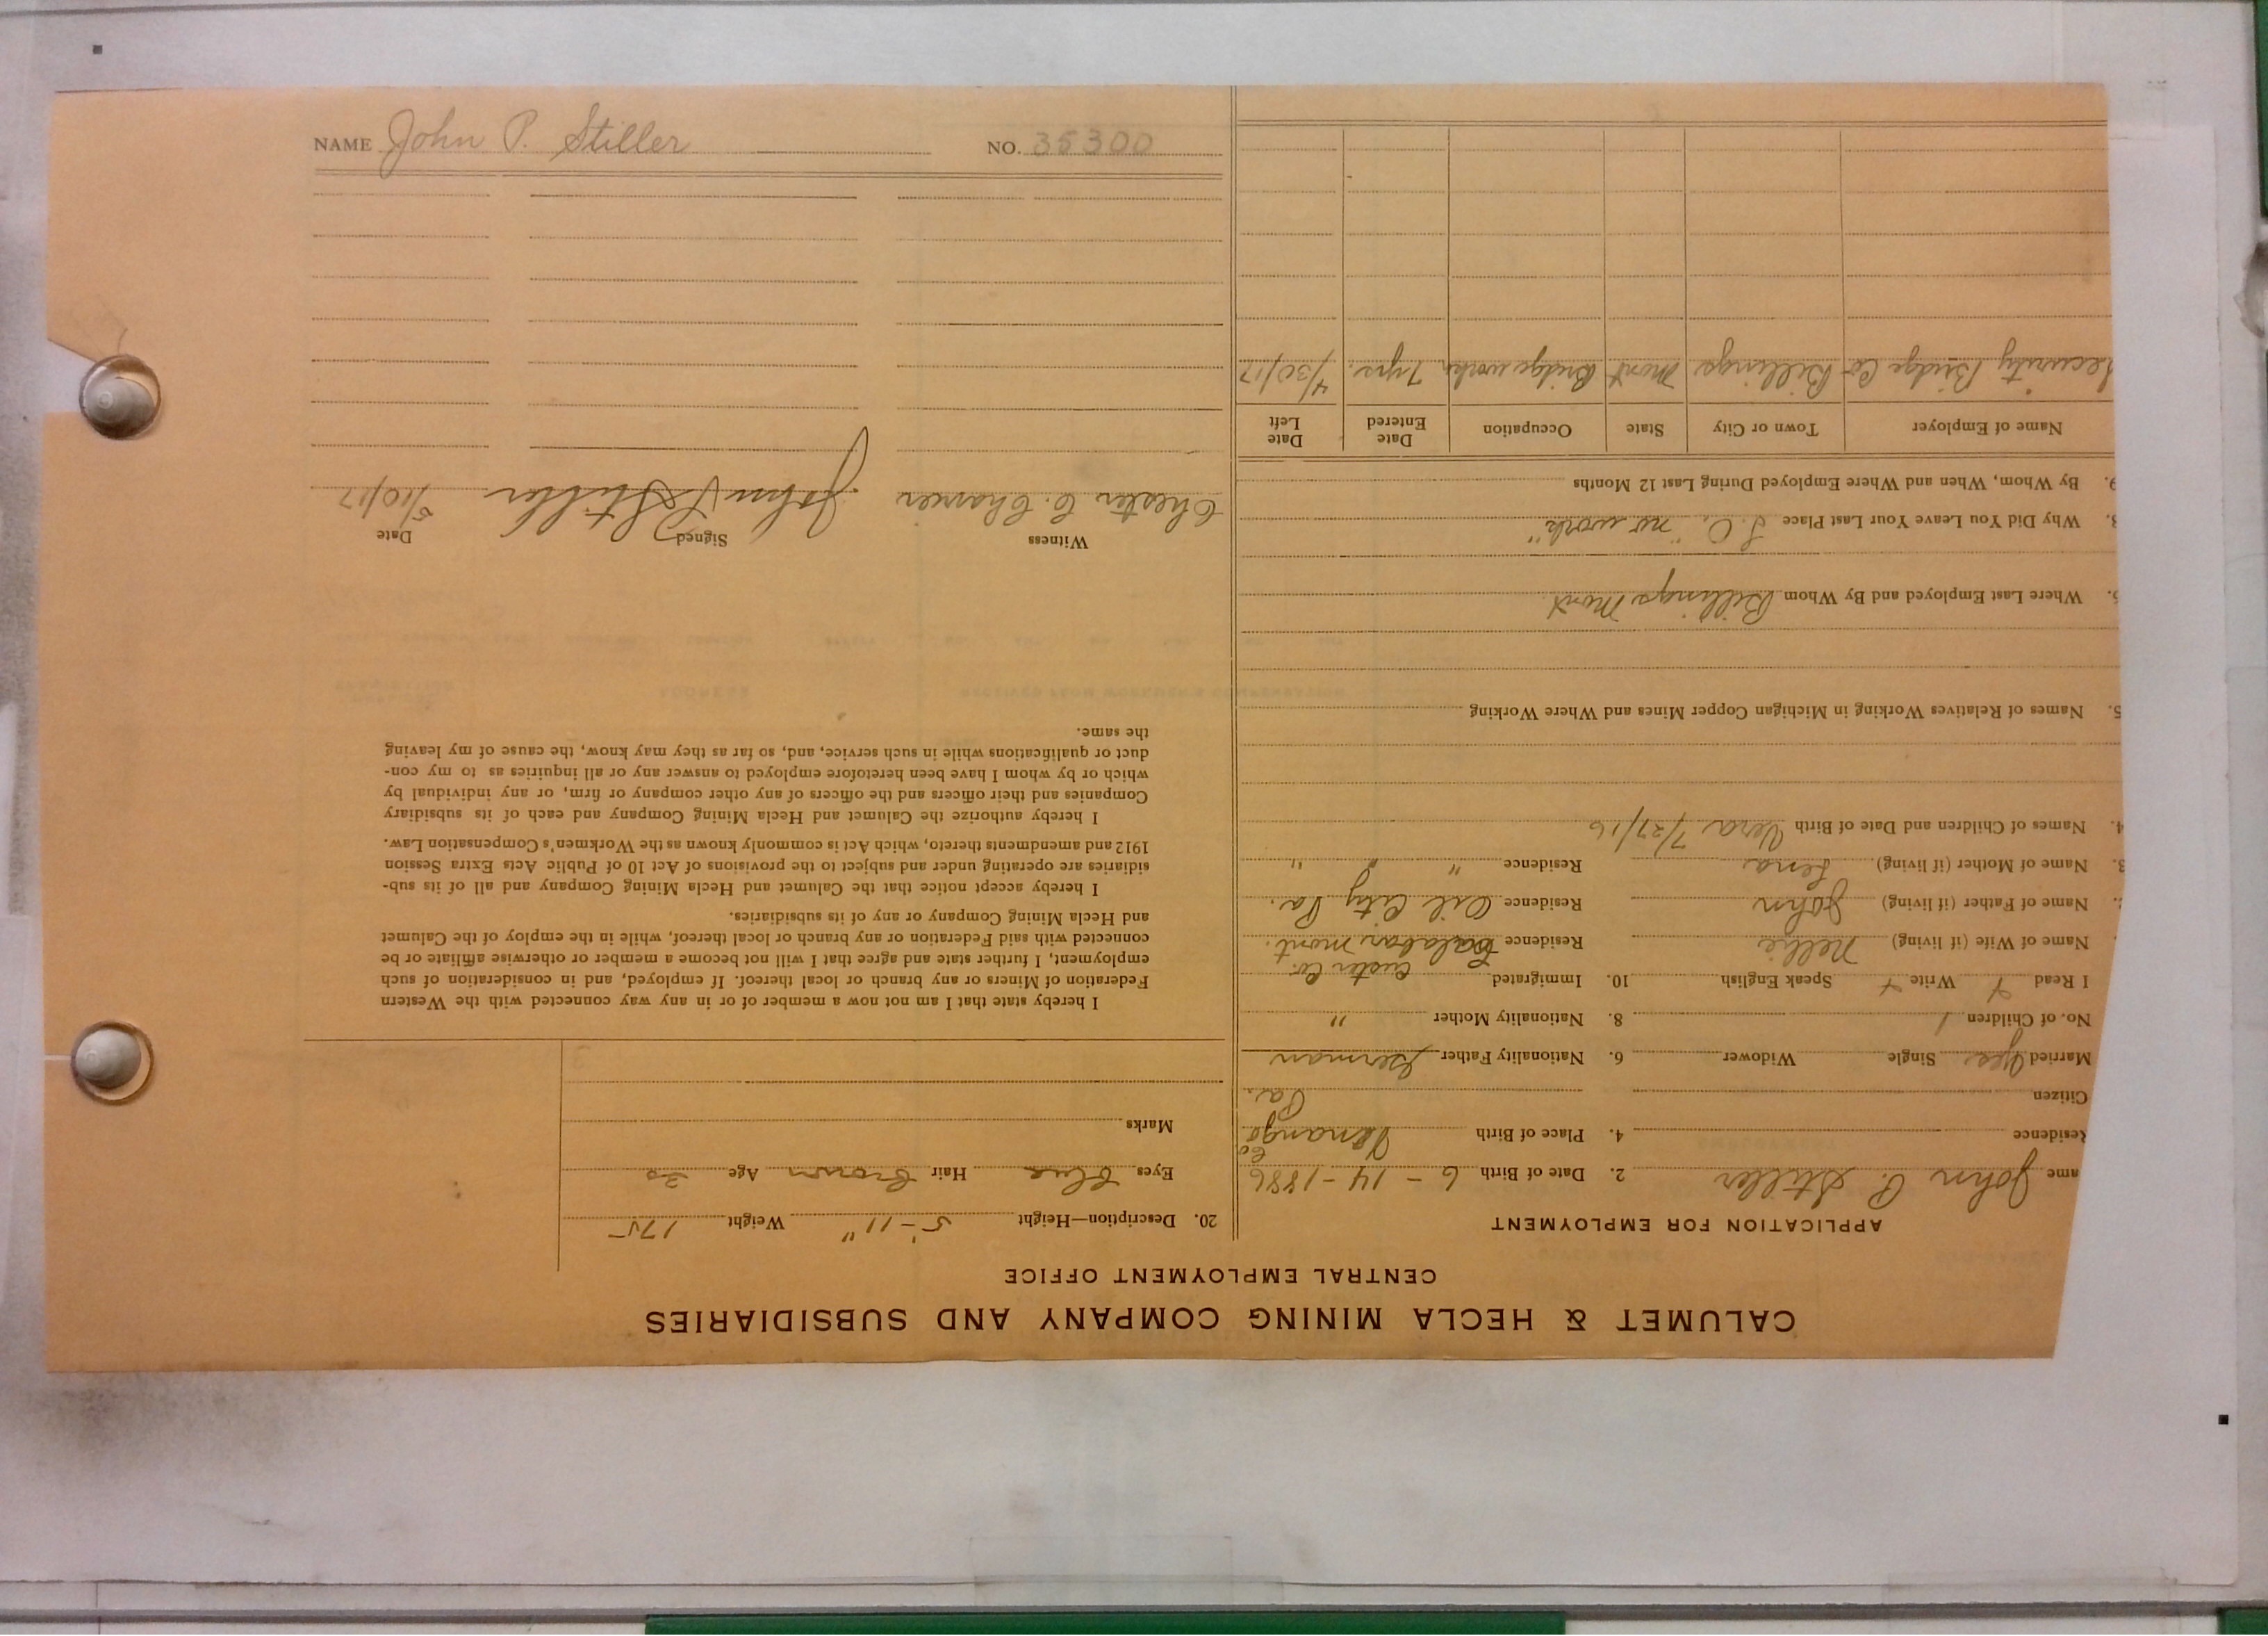 CALUMET & HECLA MINING COMPANY AND SUBSIDIARIES
CENTRAL EMPLOYMENT OFFICE
APPLICATION FOR EMPLOYMENT
ame John P. Stiller 2. Date of Birth 6 - 14 - 1886
Residence 4. Place of Birth Venango Co
Citizen Pa.
Married Yes Single Widower 6. Nationality Father German
No. of Children 1 8. Nationality Mother "
I Read Write Speak English 10. Immigrated Custer Co.
Name of Wife (if living) Nellie Residence Mont.
2. Name of Father (if living) John Residence Oil City Pa.
3. Name of Mother (if living) Lena Residence " "
4. Names of Children and Date of Birth Vera 7/27/16
5. Names of Relatives Working in Michigan Copper Mines and Where Working
Where Last Employed and By Whom Billings Mont
8. Why Did You Leave Your Last Place "no work"
9. By Whom, When and Where Employed During Last 12 Months
Name of Employer Town or City State Occupation Date Entered Date Left
Security Bridge Co Billings Mont Bridge work 7 yrs. 4/30/17
20. Description—Height 5'-11" Weight 175
Eyes blue Hair brown Age 30
Marks
I hereby state that I am not now a member of or in any way connected with the Western
Federation of Miners or any branch or local thereof. If employed, and in consideration of such
employment, I further state and agree that I will not become a member or otherwise affiliate or be
connected with said Federation or any branch or local thereof, while in the employ of the Calumet
and Hecla Mining Company or any of its subsidiaries.
I hereby accept notice that the Calumet and Hecla Mining Company and all of its sub-
sidiaries are operating under and subject to the provisions of Act 10 of Public Acts Extra Session
1912 and amendments thereto, which Act is commonly known as the Workmen's Compensation Law.
I hereby authorize the Calumet and Hecla Mining Company and each of its subsidiary
Companies and their officers and the officers of any other company or firm, or any individual by
which or by whom I have been heretofore employed to answer any or all inquiries as to my con-
duct or qualifications while in such service, and, so far as they may know, the cause of my leaving
the same.
Witness Signed Date
Chester C. John P Stiller 5/10/17
NAME John P. Stiller NO. 35300